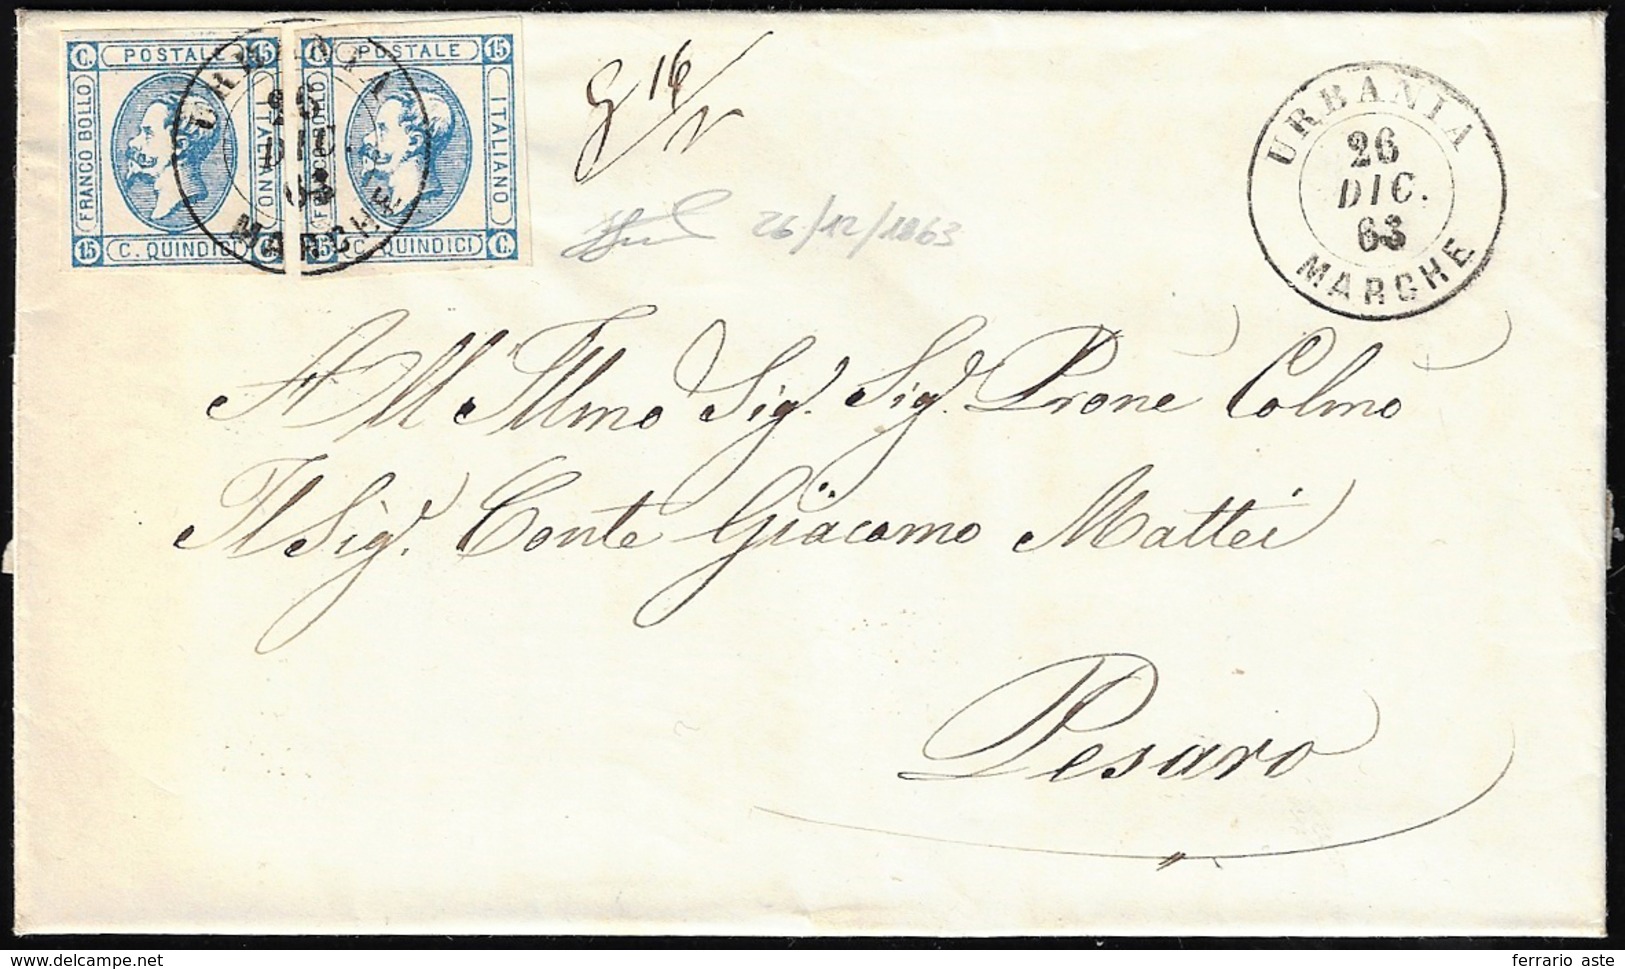 C. POSTALE 15
FRANCO BOLLO
ITALIANO
15 C. QUINDICI C.
C. POSTALE 15
FRANCO BOLLO
ITALIANO
15 C. QUINDICI C.
URBANIA
26
DIC.
63
MARCHE
16
26/12/1863
URBANIA
26
DIC.
63
MARCHE
All Illmo Sig. Sig. Prone Colmo
Il Sig. Conte Giacomo Mattei
Pesaro
www.delcampe.net
ferrario aste